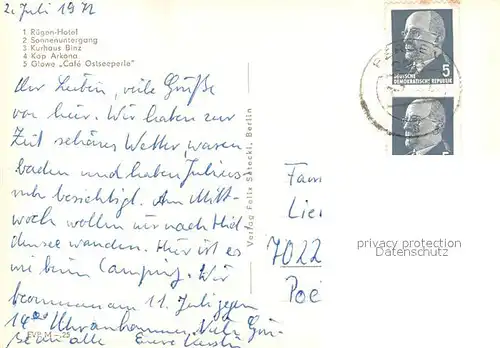 2. Juli 1972
1 Rügen-Hotel
2 Sonnenuntergang
3 Kurhaus Binz
4 Kap Arkona
5 Glowe „Café Ostseeperle"
Ihr Lieben, viele Grüße
von hier. Wir haben zur
Zeit schönes Wetter, waren
baden und haben Julius-
ruh besichtigt. Am Mitt-
woch wollen wir nach Hid
densee wandern. Hier ist es
wie beim Camping. Wir
kommen am 11. Juli gegen
14 Uhr an. Viele Grü-
ße an alle Eure Kerstin
EVP M -,25
Verlag Felix Setecki, Berlin
DEUTSCHE
DEMOKRATISCHE REPUBLIK
5
5
Fam
Lie
7022
privacy protection
Datenschutz